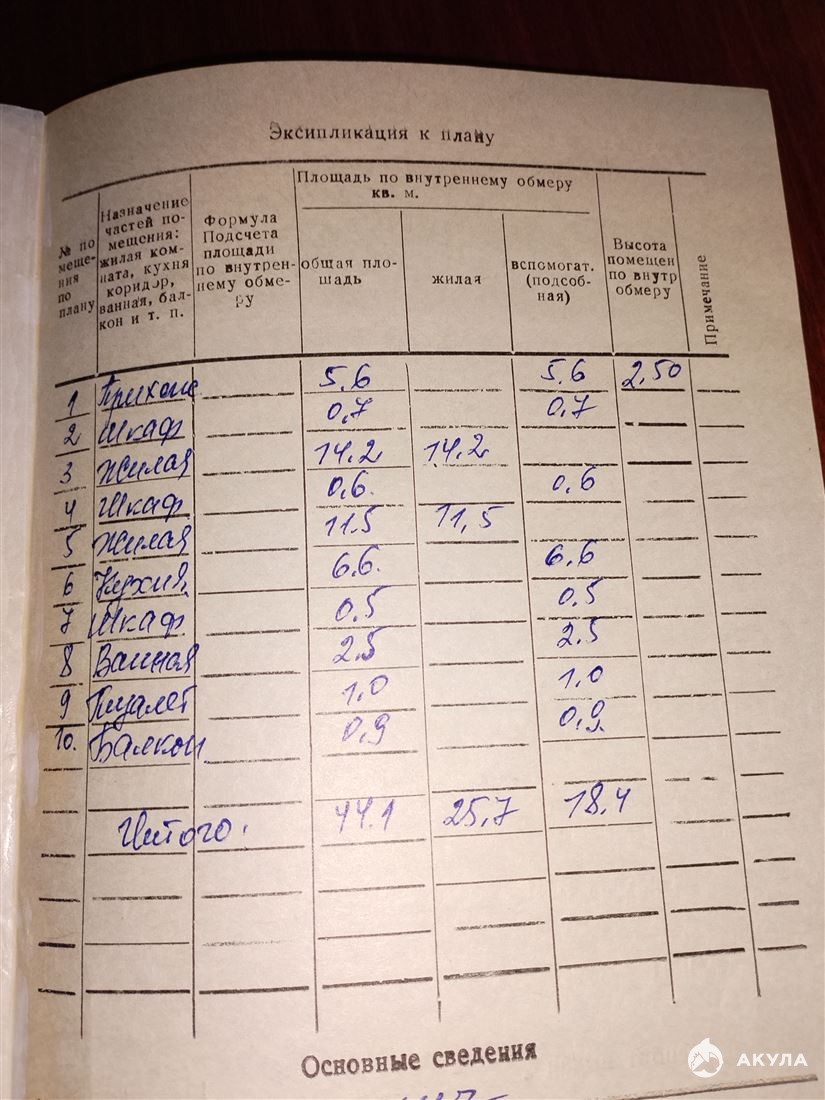 Эксипликация к плану
№ по мещения по плану
Назначение частей помещения: жилая комната, кухня коридор, ванная, балкон и т. п.
Формула Подсчета площади по внутреннему обмеру
Площадь по внутреннему обмеру кв. м.
общая площадь
жилая
вспомогат. (подсобная)
Высота помещен по внутр обмеру
Примечание
1 Прихож 5.6 5.6 2,50
2 Шкаф 0,7 0,7
3 Жилая 14.2 14.2
4 Шкаф 0,6. 0,6
5 Жилая 11.5 11,5
6 Кухня 6.6. 6.6
7 Шкаф 0.5 0.5
8 Ванная 2.5 2.5
9 Туалет 1,0 1,0
10. Балкон 0,9 0,9
Итого. 44.1 25,7 18,4
Основные сведения
АКУЛА